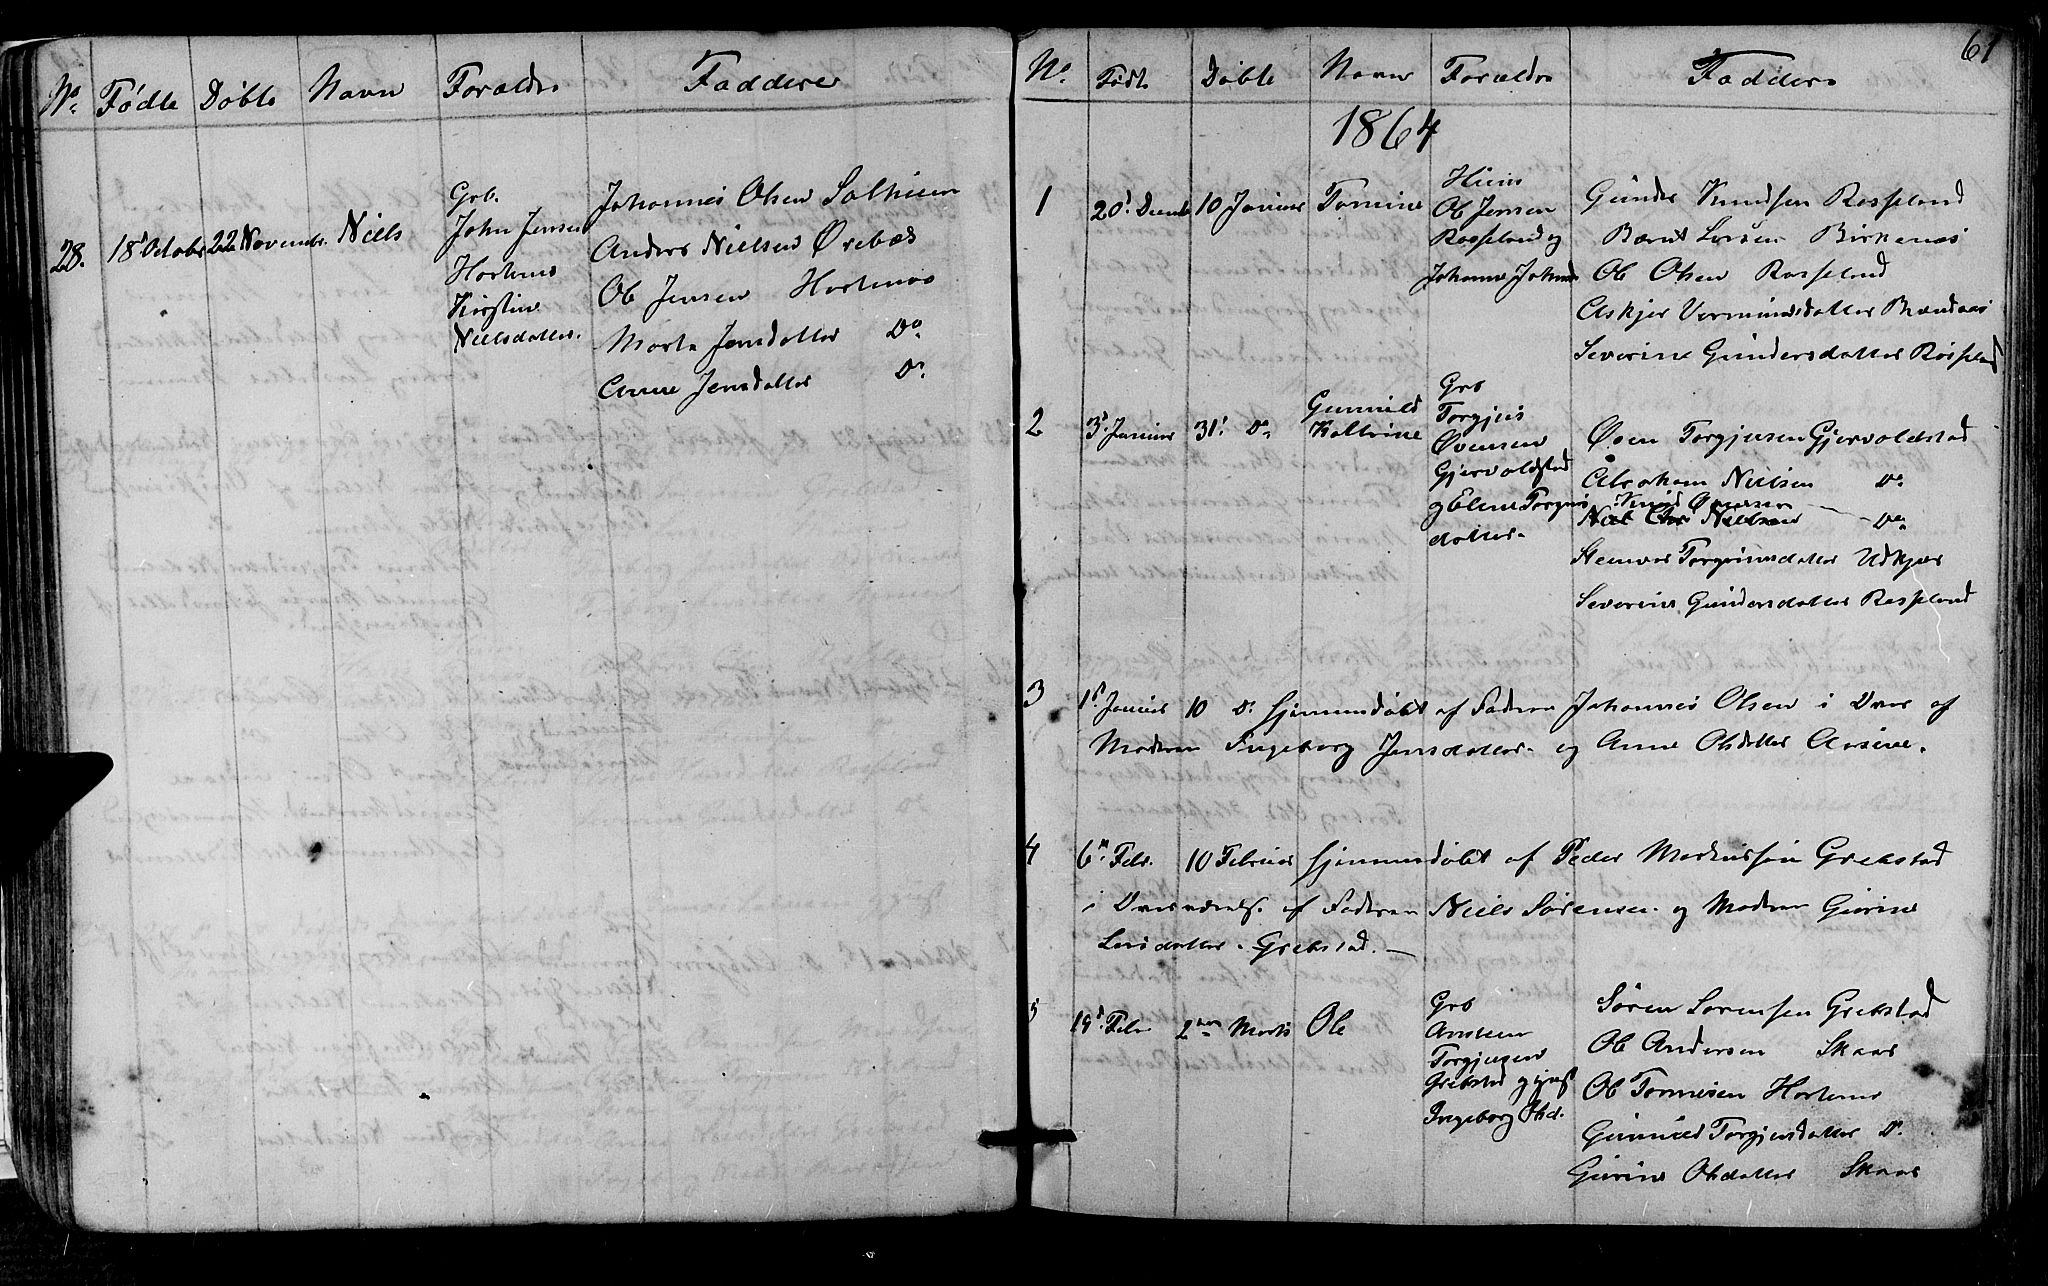 No. Fødte Døbte Navn Forældre Faddere
28. 18d Octobr 22de Novembr. Niels
Grb.
John Jensen
Hortenæs
Kirstine
Nielsdatter.
Johannes Olsen Solheim
Anders Nielsen Ørebæk
Ole Jensen Hortenæs
Marte Jensdatter Do
Anne Jensdatter Do.
61
No. Født Døbte Navn Forældre Faddere
1864
1 20d Decemb 10 Januar Tomine
Huus
Ole Jensen
Rosseland og
Johanne Johnsd
Gunder Knudsen Rosseland
Bernt Larsen Birkenæs
Ole Olsen Rosseland
Askjer Vermundsdatter
Severine Gundersdatter Rosseland
2 3d Januar 31. Do. Gunnild Kathrine
Grb
Torgjus
Øvensen
Gjervoldstad
og Elene Torgius
datter.
Øven Torgjusen Gjervoldstad
Abraham Nielsen Do.
Knud Øvensen
Niels Chr Nielsen Do
Steinvor Torgrimsdatter Udkjær
Severine Gundersdatter Rosseland
3 1d Januar 10 D. hjemmedøbt af Faderen Johannes Olsen i Overv af
Moderen Ingeborg Jensdatter og Anne Olsdatter
4 6te Febr. 10 Februar hjemmedøbt af Peder Grebstad
i Overværelse af Faderen Niels Sørensen og Moderen Gurine
Larsdatter Grebstad.
5 19d Febr 2den Marts Ole
Grb
Torgjusen
Grebstad og
Ingeborg Olsd.
Søren Sørensen Grebstad
Ole Andersen Skaar
Ole Hortenæs
Gunnild Torgjusdatter D.
Gurine Olsdatter Skaar